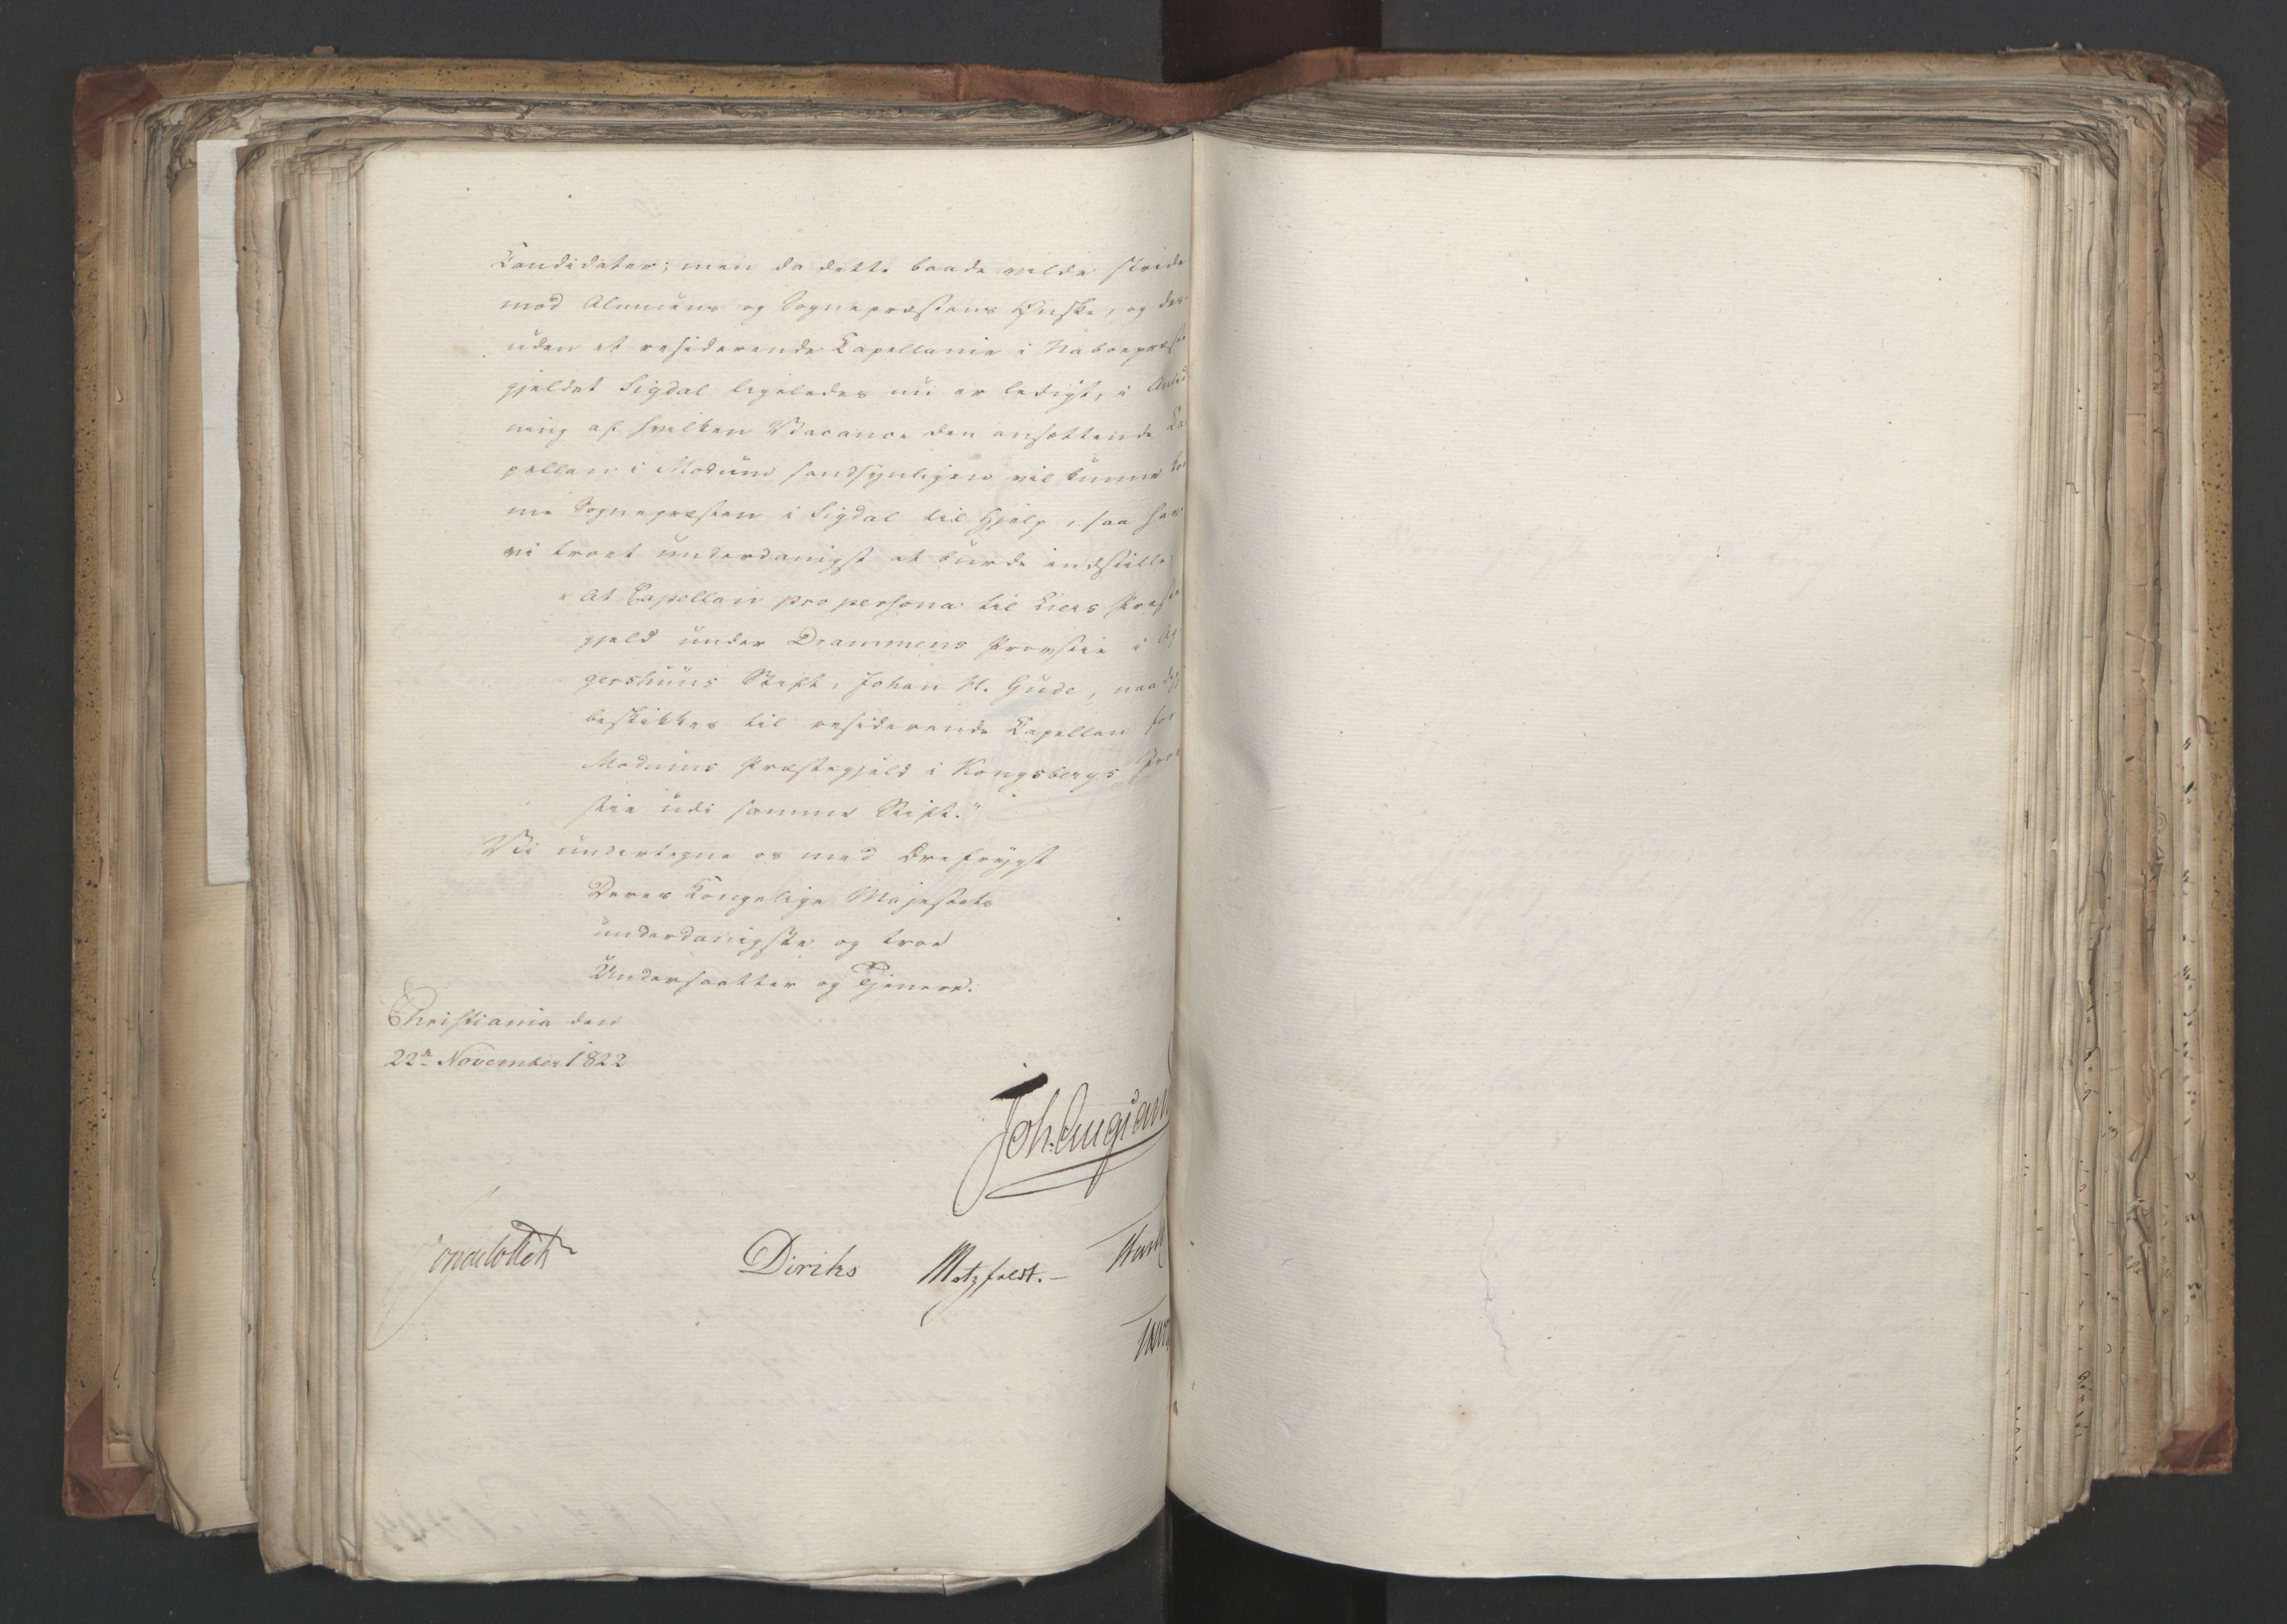 Candidater; men da dette baade vilde stride
mod Almuens og Sognepræstens Ønske, og des-
uden et residerende Capellanie i Naboepræste
gjeldet Sigdal ligeledes nu er ledigt, i Anled
ning af hvilken Vacance den ansættende Ca
pellan i Modum sandsynligen vil kunne kom
me Sognepræsten i Sigdal til Hjelp, saa har
vi troet underdanigst at burde indstille:
"At Capellan pro persona til Liers Præste
gjeld under Drammens Provstie i Ag-
gershuus Stift, Johan H. Gude, naadigst
beskikkes til residerende Capellan for
Modums Præstegjeld i Kongsbergs Prov
stie udi samme Stift."
Vi undertegne os med Ærefrygt
Deres Kongelige Majestæts
underdanigste og troe
Undersaatter og Tjenere.
Christiania den
22de November 1822
Joh. Aug. San
Jonas Collett
Diriks
Motzfeldt.